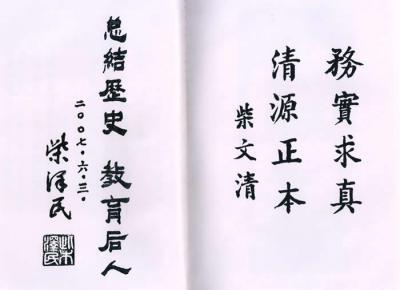 務實求真
清源正本
柴文清
总結歷史 教育后人
二〇〇七·六·三·
柴泽民